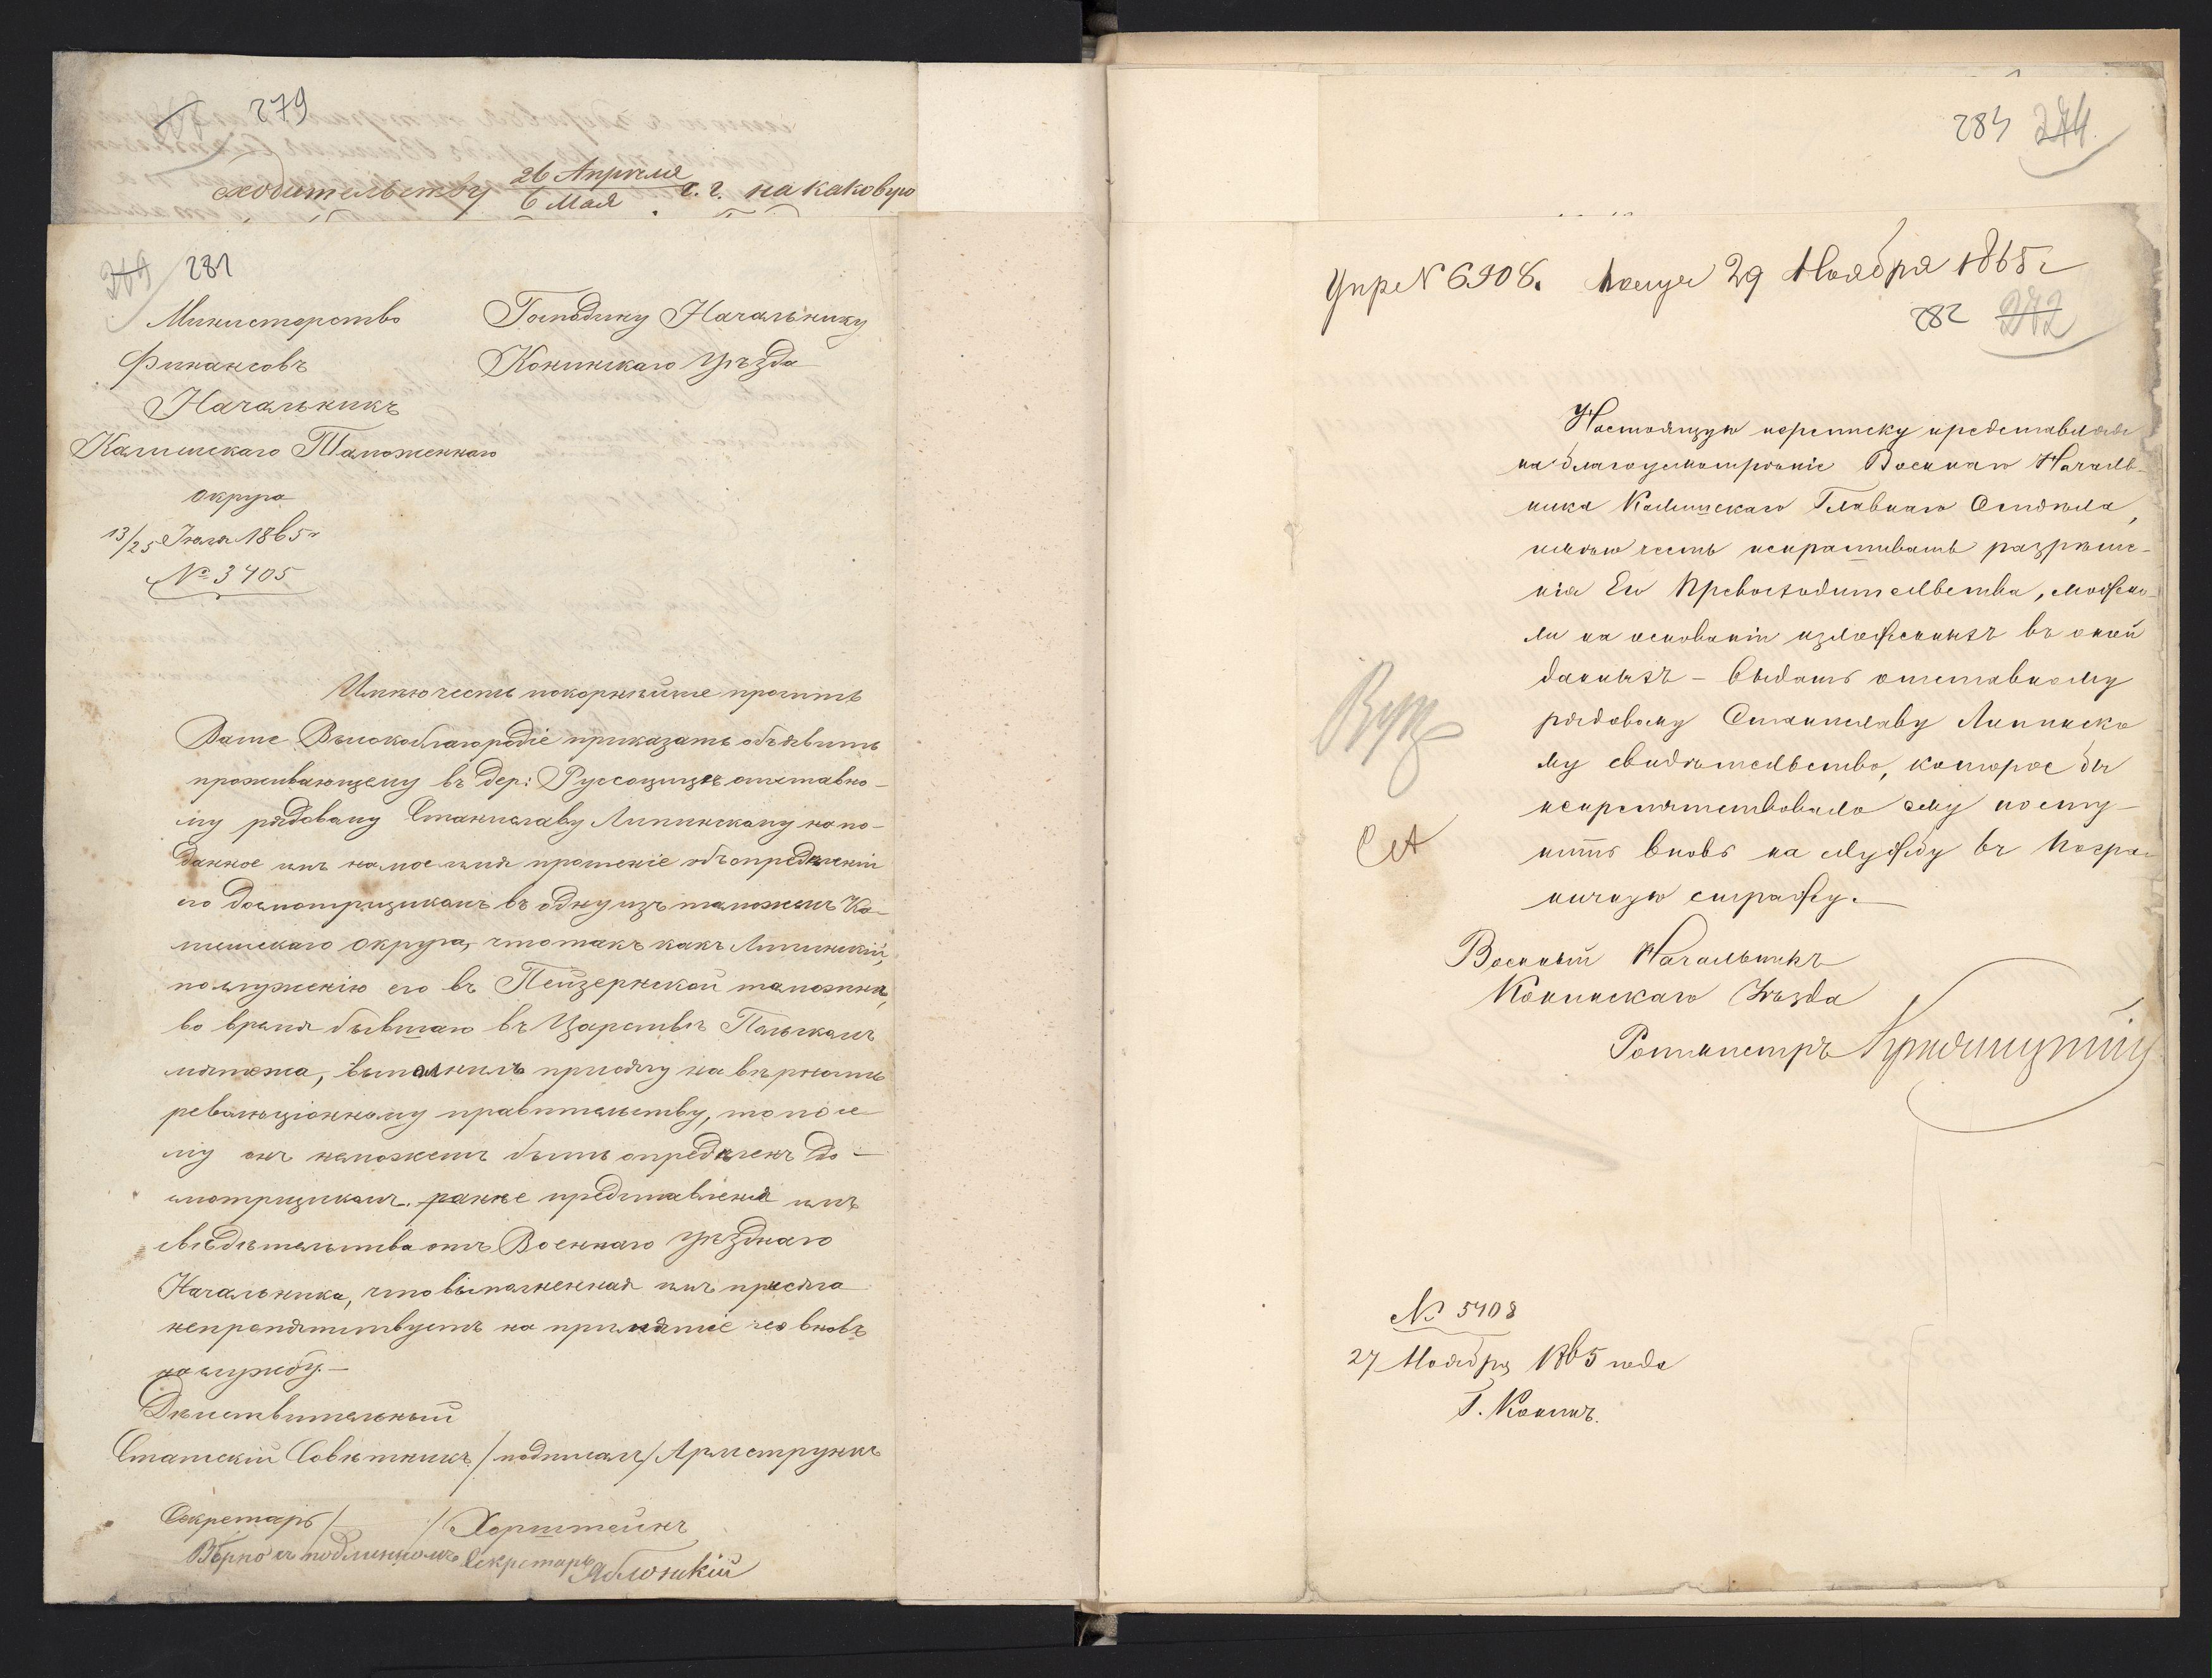 279
сходительству 26 Апреля / 6 Мая с. г. на каковую
269 281
Министерство
Финансовъ
Начальникъ
Калишскаго Таможеннаго
округа
13/25 Іюля 1865 г
№ 3405
Господину Начальнику
Конинскаго уѣзда
Имѣю честь покорнѣйше просить
Ваше Высокоблагородіе приказать объявить
проживающему въ дер: Руссоцицѣ отставно-
му рядовому Станиславу Липинскому на по-
данное имъ на мое имя прошеніе объ опредѣленіи
его досмотрщикомъ въ одну изъ таможенъ Ка-
лишскаго округа, что такъ какъ Липинскій,
по служенію его въ Пейзернской таможнѣ,
во время бывшаго въ Царствѣ Польскомъ
мятежа, выполнилъ присягу на вѣрность
революціонному правительству, то посе
му онъ неможетъ быть опредѣленъ до-
смотрщикомъ ранѣе представленія имъ
свѣдѣтельства отъ Военнаго уѣзднаго
Начальника, что выполненная имъ присяга
непрепятствуетъ на принятіе его вновь
на службу.—
Дѣйствительный
Статскій Совѣтникъ /подписалъ/ Армстронгъ
Секретарь / / Хорштейнъ
Вѣрно съ подлиннымъ Секретарь Яблонскій
283 274.
Упр № 6908. Получ 29 Ноября 1865 г
282 272
Настоящую переписку представляя
на благоусмотрѣніе Военнаго Началь-
ника Калишскаго Главнаго Отдѣла,
имѣю честь испрашивать разрѣше-
нія Его Превосходительства, можно-
ли на основаніи изложенныхъ въ оной
данныхъ – выдать отставному
рядовому Станиславу Липинско
му свидѣтельство, которое бы
непрепятствовало ему посту-
пить вновь на службу въ Погра-
ничную стражу.—
Военный Начальникъ
Конинскаго Уѣзда
Ротмистръ
№ 5408
27 Ноября 1865 года
Г. Конинъ.